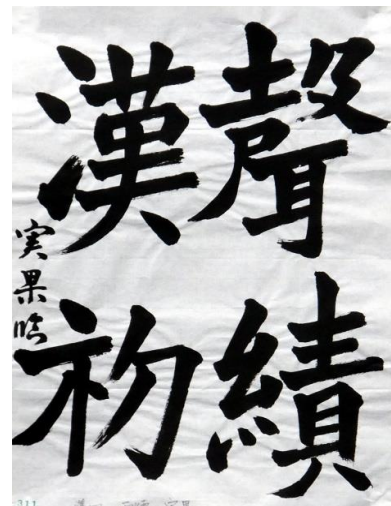 聲績
漢初
実果臨
311